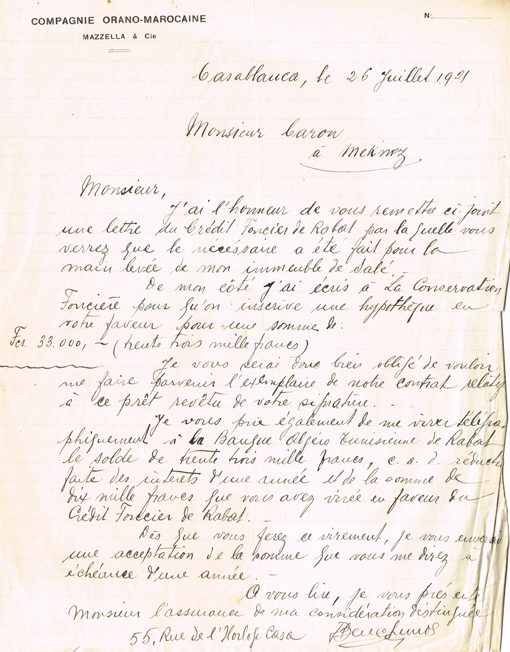 COMPAGNIE ORANO-MAROCAINE
MAZZELLA & Cie
N°
Casablanca, le 26 Juillet 1921
Monsieur Caron
à Meknez
Monsieur,
J'ai l'honneur de vous remettre ci-joint
une lettre du Crédit Foncier de Rabat par laquelle vous
verrez que le nécessaire a été fait pour la
main levée de mon immeuble de Salé.
De mon côté j'ai écris à La Conservation
Foncière pour qu'on inscrive une hypothèque en
votre faveur pour une somme de:
Fcs. 33.000,- (trente trois mille francs)
Je vous serai donc bien obligé de vouloir
me faire parvenir l'exemplaire de notre contrat relatif
à ce prêt revêtu de votre signature. -
Je vous prie également de me virer télégra-
phiquement à la Banque Algéro Tunisienne de Rabat
le solde de trente trois mille francs, c. a. d. réduction
faite des interets d'une année et de la somme de
dix mille francs que vous avez virée en faveur du
Crédit Foncier de Rabat. -
Dès que vous ferez ce virement, je vous enverrai
une acceptation de la somme que vous me direz à
échéance d'une année. -
A vous lire, je vous présente
Monsieur l'assurance de ma considération distinguée
55, Rue de l'Horloge Casa